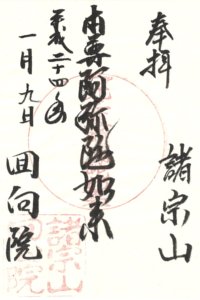 奉拝
諸宗山
本尊阿弥陀如来
平成二十四年
一月九日
回向院
諸宗山